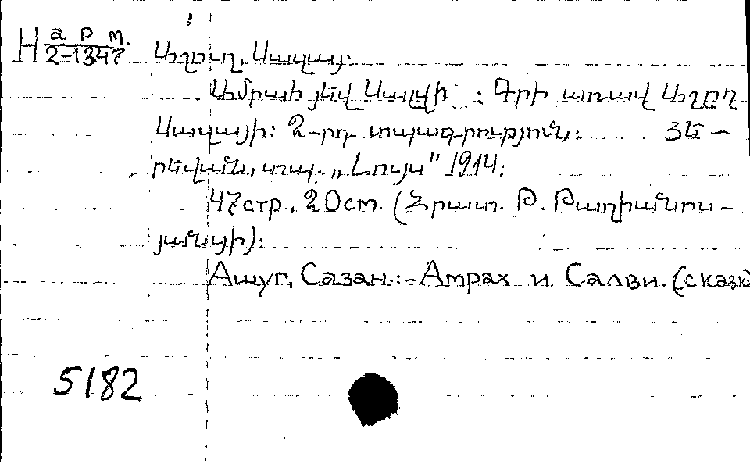 Н арм. 2-1347
Աշըղ, Սազայ:
Ամրահ յեվ Սալվի : Գրի առավ Աշըղ
Սազայի: 2-րդ տպագրություն: Յե-
րեվան, տպ. „Լույս" 1914:
47стр., 20cm. (Հրատ. Թ. Թադիանոս-
յանցի):
Ашуг, Сазан.: Амрах и Салви. (сказк
5182